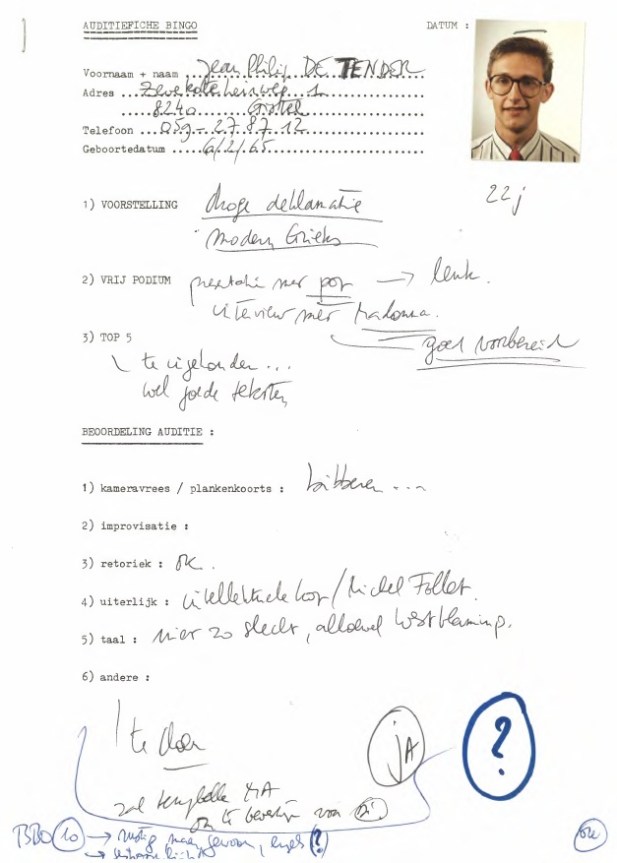 AUDITIEFICHE BINGO
DATUM :
Voornaam + naam Jean Philip DE TENDER
Adres 1
8240 Gistel
Telefoon 059-27.87.12
Geboortedatum 6/2/65
22 j
1) VOORSTELLING droge deklamatie
modern Grieks
2) VRIJ PODIUM met pop → leuk.
interview met Madonna.
goed voorbereid
3) TOP 5
te ...
wel goede teksten
BEOORDELING AUDITIE :
1) kameravrees / plankenkoorts : bibberen ...
2) improvisatie :
3) retoriek : OK.
4) uiterlijk : intellektuele kop / Michel Follet.
5) taal : niet zo slecht, alhoewel Westvlaming.
6) andere :
te doen
JA
?
zal
BBO 10 → rustig, ?
→
OK